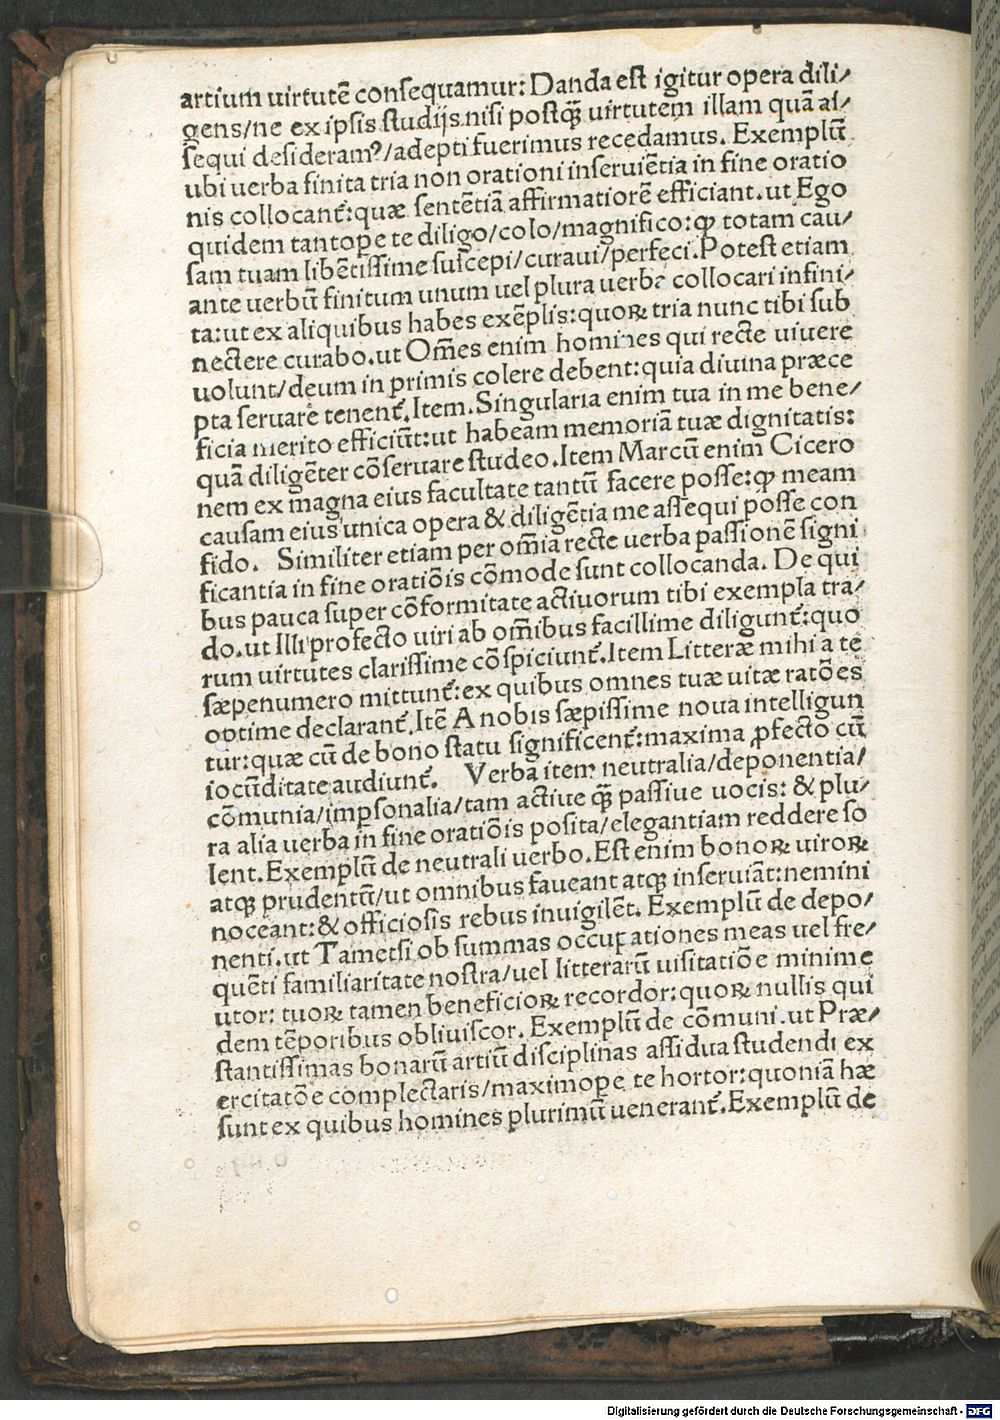 artium uirtutē consequamur: Danda est igitur opera dili/
gens/ne ex ipsis studijs nisi postꝗ̄ uirtutem illam quā as/
sequi desideramꝰ/adepti fuerimus recedamus. Exemplū
ubi uerba finita tria non orationi inseruiētia in fine oratio
nis collocant᷑: quæ sentētiā affirmatiorē efficiant. ut Ego
quidem tantopere te diligo/colo/magnifico: ꝙ totam cau/
sam tuam libētissime suscepi/curaui/perfeci. Potest etiam
ante uerbū finitum unum uel plura uerba collocari infini/
ta: ut ex aliquibus habes exēplis: quoꝝ tria nunc tibi sub
nectere curabo. ut Om̄es enim homines qui recte uiuere
uolunt/deum in primis colere debent: quia diuina præce
pta seruare tenent᷑. Item. Singularia enim tua in me bene/
ficia merito efficiūt: ut habeam memoriā tuæ dignitatis:
quā diligēter cōseruare studeo. Item Marcū enim Cicero
nem ex magna eius facultate tantū facere posse: ꝙ meam
causam eius unica opera & diligētia me assequi posse con
fido. Similiter etiam per om̄ia recte uerba passionē signi
ficantia in fine oratiōis cōmode sunt collocanda. De qui
bus pauca super cōformitate actiuorum tibi exempla tra/
do. ut Illi profecto uiri ab om̄ibus facillime diligunt᷑: quo
rum uirtutes clarissime cōspiciunt᷑. Item Litteræ mihi a te
sæpenumero mittunt᷑: ex quibus omnes tuæ uitæ ratōes
optime declarant᷑. Itē A nobis sæpissime noua intelligun
tur: quæ cū de bono statu significent᷑: maxima ꝓfecto cū
iocūditate audiunt᷑. Verba item neutralia/deponentia/
cōmunia/imꝑsonalia/tam actiue ꝗ̄ passiue uocis: & plu/
ra alia uerba in fine oratiōis posita/elegantiam reddere so
lent. Exemplū de neutrali uerbo. Est enim bonoꝝ uiroꝝ
atqꝫ prudentū/ut omnibus faueant atqꝫ inseruiāt: nemini
noceant: & officiosis rebus inuigilēt. Exemplū de depo/
nenti. ut Tametsi ob summas occupationes meas uel fre/
quēti familiaritate nostra/uel litterarū uisitatiōe minime
utor: tuoꝝ tamen beneficioꝝ recordor: quoꝝ nullis qui
dem tēporibus obliuiscor. Exemplū de cōmuni. ut Præ/
stantissimas bonarū artiū disciplinas assidua studendi ex
ercitatōe complectaris/maximopere te hortor: quoniā hæ
sunt ex quibus homines plurimū uenerant᷑. Exemplū de
Digitalisierung gefördert durch die Deutsche Forschungsgemeinschaft - DFG